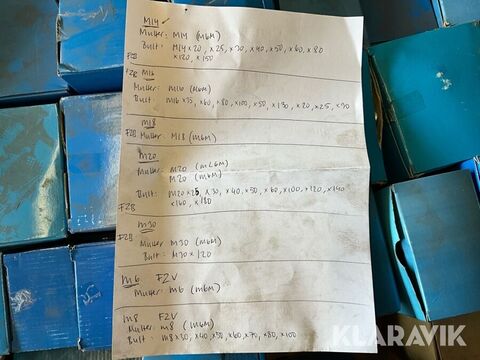 M14 ✓
Mutter: M14 (M6M)
Bult: M14x20, x25, x30, x40, x50, x60, x80
x120, x150
FZB
FZB M16
Mutter: M16 (M6M)
Bult: M16x35, x60, x80, x100, x50, x130, x20, x25, x70
M18
FZB Mutter: M18 (M6M)
M20
Mutter: M20 (M6M)
M20 (M6M)
Bult: M20x25, x30, x40, x50, x60, x100, x120, x140
x160, x180
FZB
M30
FZB
Mutter M30 (M6M)
Bult: M30x120
M6 FZV
Mutter: M6 (M6M)
M8 FZV
Mutter: M8 (M6M)
Bult: M8x30, x40, x50, x60, x70, x80, x100
KLARAVIK